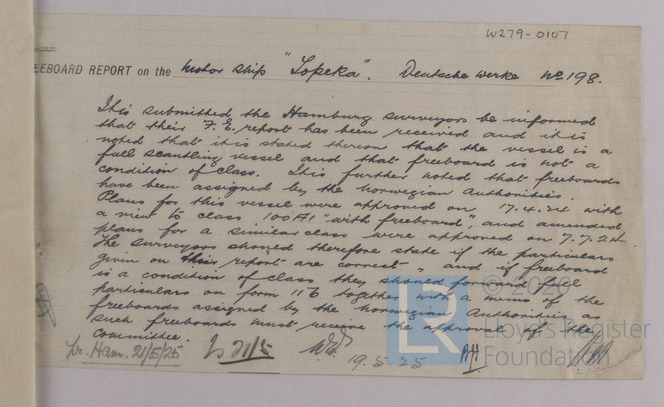 W279-0107
EEBOARD REPORT on the Motor Ship "Topeka". Deutsche Werke No 198.
It is submitted the Hamburg Surveyors be informed
that their F.E. report has been received and it is
noted that it is stated thereon that the vessel is a
full scantling vessel and that freeboard is not a
condition of class. It is further noted that freeboards
have been assigned by the Norwegian Authorities.
Plans for this vessel were approved on 17.4.24 with
a view to class 100A1 "with freeboard", and amended
plans for a similar class were approved on 7.7.24.
The Surveyors should therefore state if the particulars
given on their report are correct, and if freeboard
is a condition of class they should forward full
particulars on form 11 E together with a memo of the
freeboards assigned by the Norwegian Authorities as
such freeboards must receive the approval of the
Committee.
Lr. Ham. 21/5/25
21/5
19.5.25
© 2020
LR
Lloyd's Register
Foundation